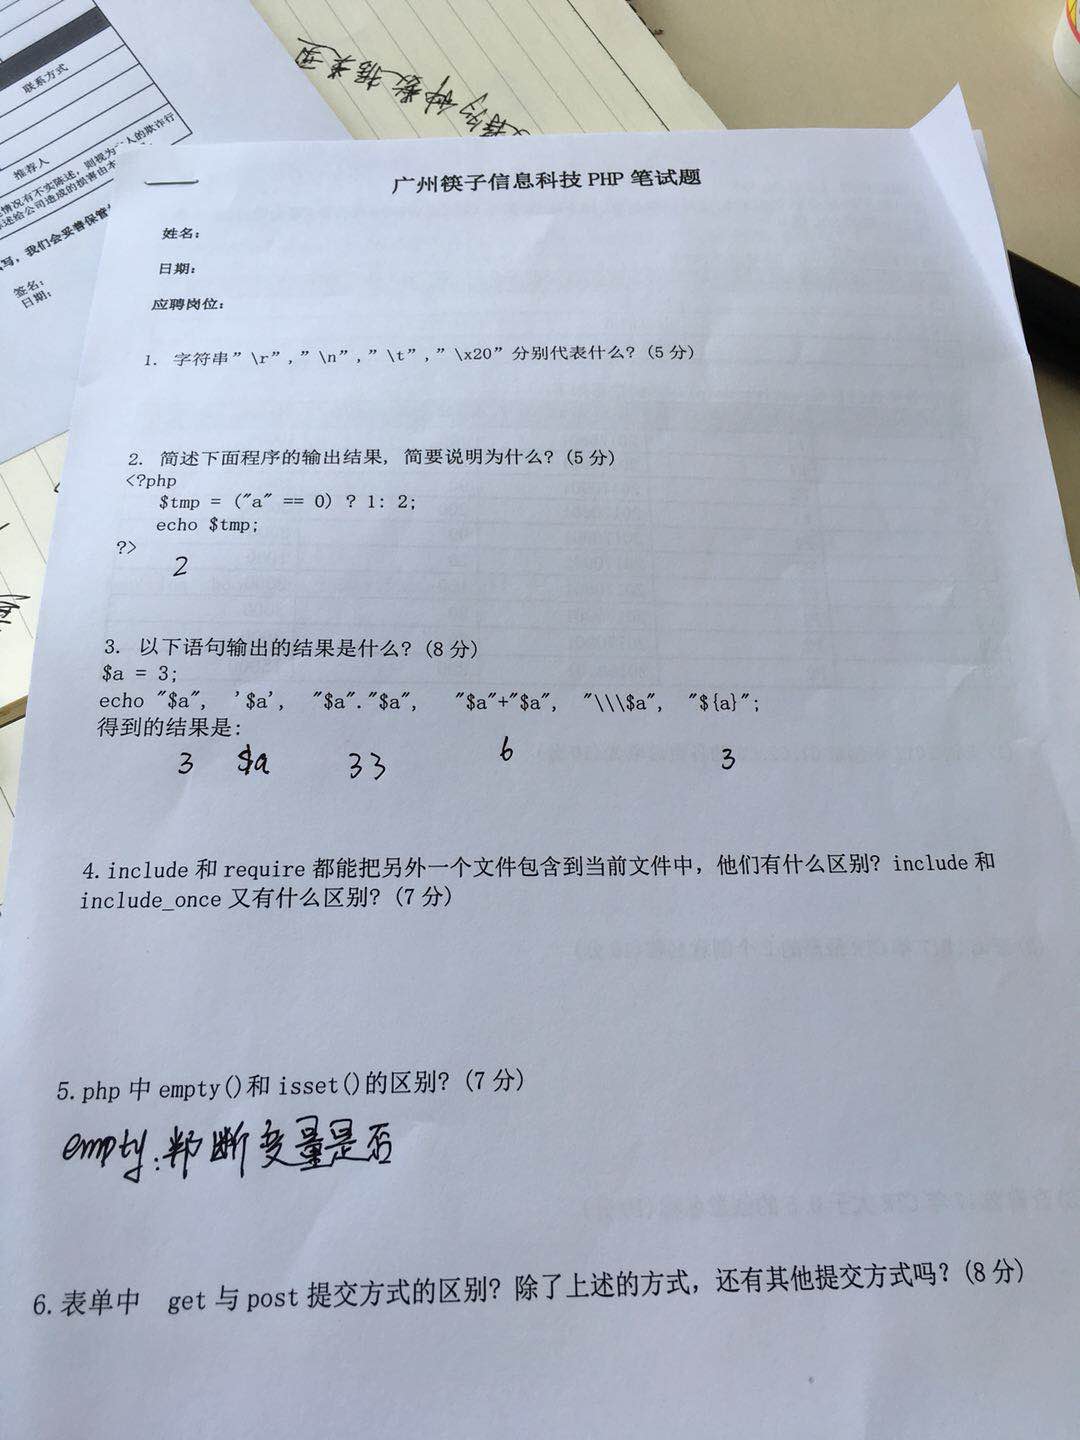 联系方式
推荐人
签名:
日期:
广州筷子信息科技 PHP 笔试题
姓名:
日期:
应聘岗位:
1. 字符串”\r”,”\n”,”\t”,”\x20”分别代表什么? (5 分)
2. 简述下面程序的输出结果, 简要说明为什么? (5 分)
<?php
$tmp = ("a" == 0) ? 1: 2;
echo $tmp;
?>
2
3. 以下语句输出的结果是什么? (8 分)
$a = 3;
echo "$a", '$a', "$a"."$a", "$a"+"$a", "\\\$a", "${a}";
得到的结果是:
3 $a 33 6 3
4. include 和 require 都能把另外一个文件包含到当前文件中, 他们有什么区别? include 和
include_once 又有什么区别? (7 分)
5. php 中 empty()和 isset()的区别? (7 分)
empty:判断变量是否
6. 表单中 get 与 post 提交方式的区别? 除了上述的方式, 还有其他提交方式吗? (8 分)